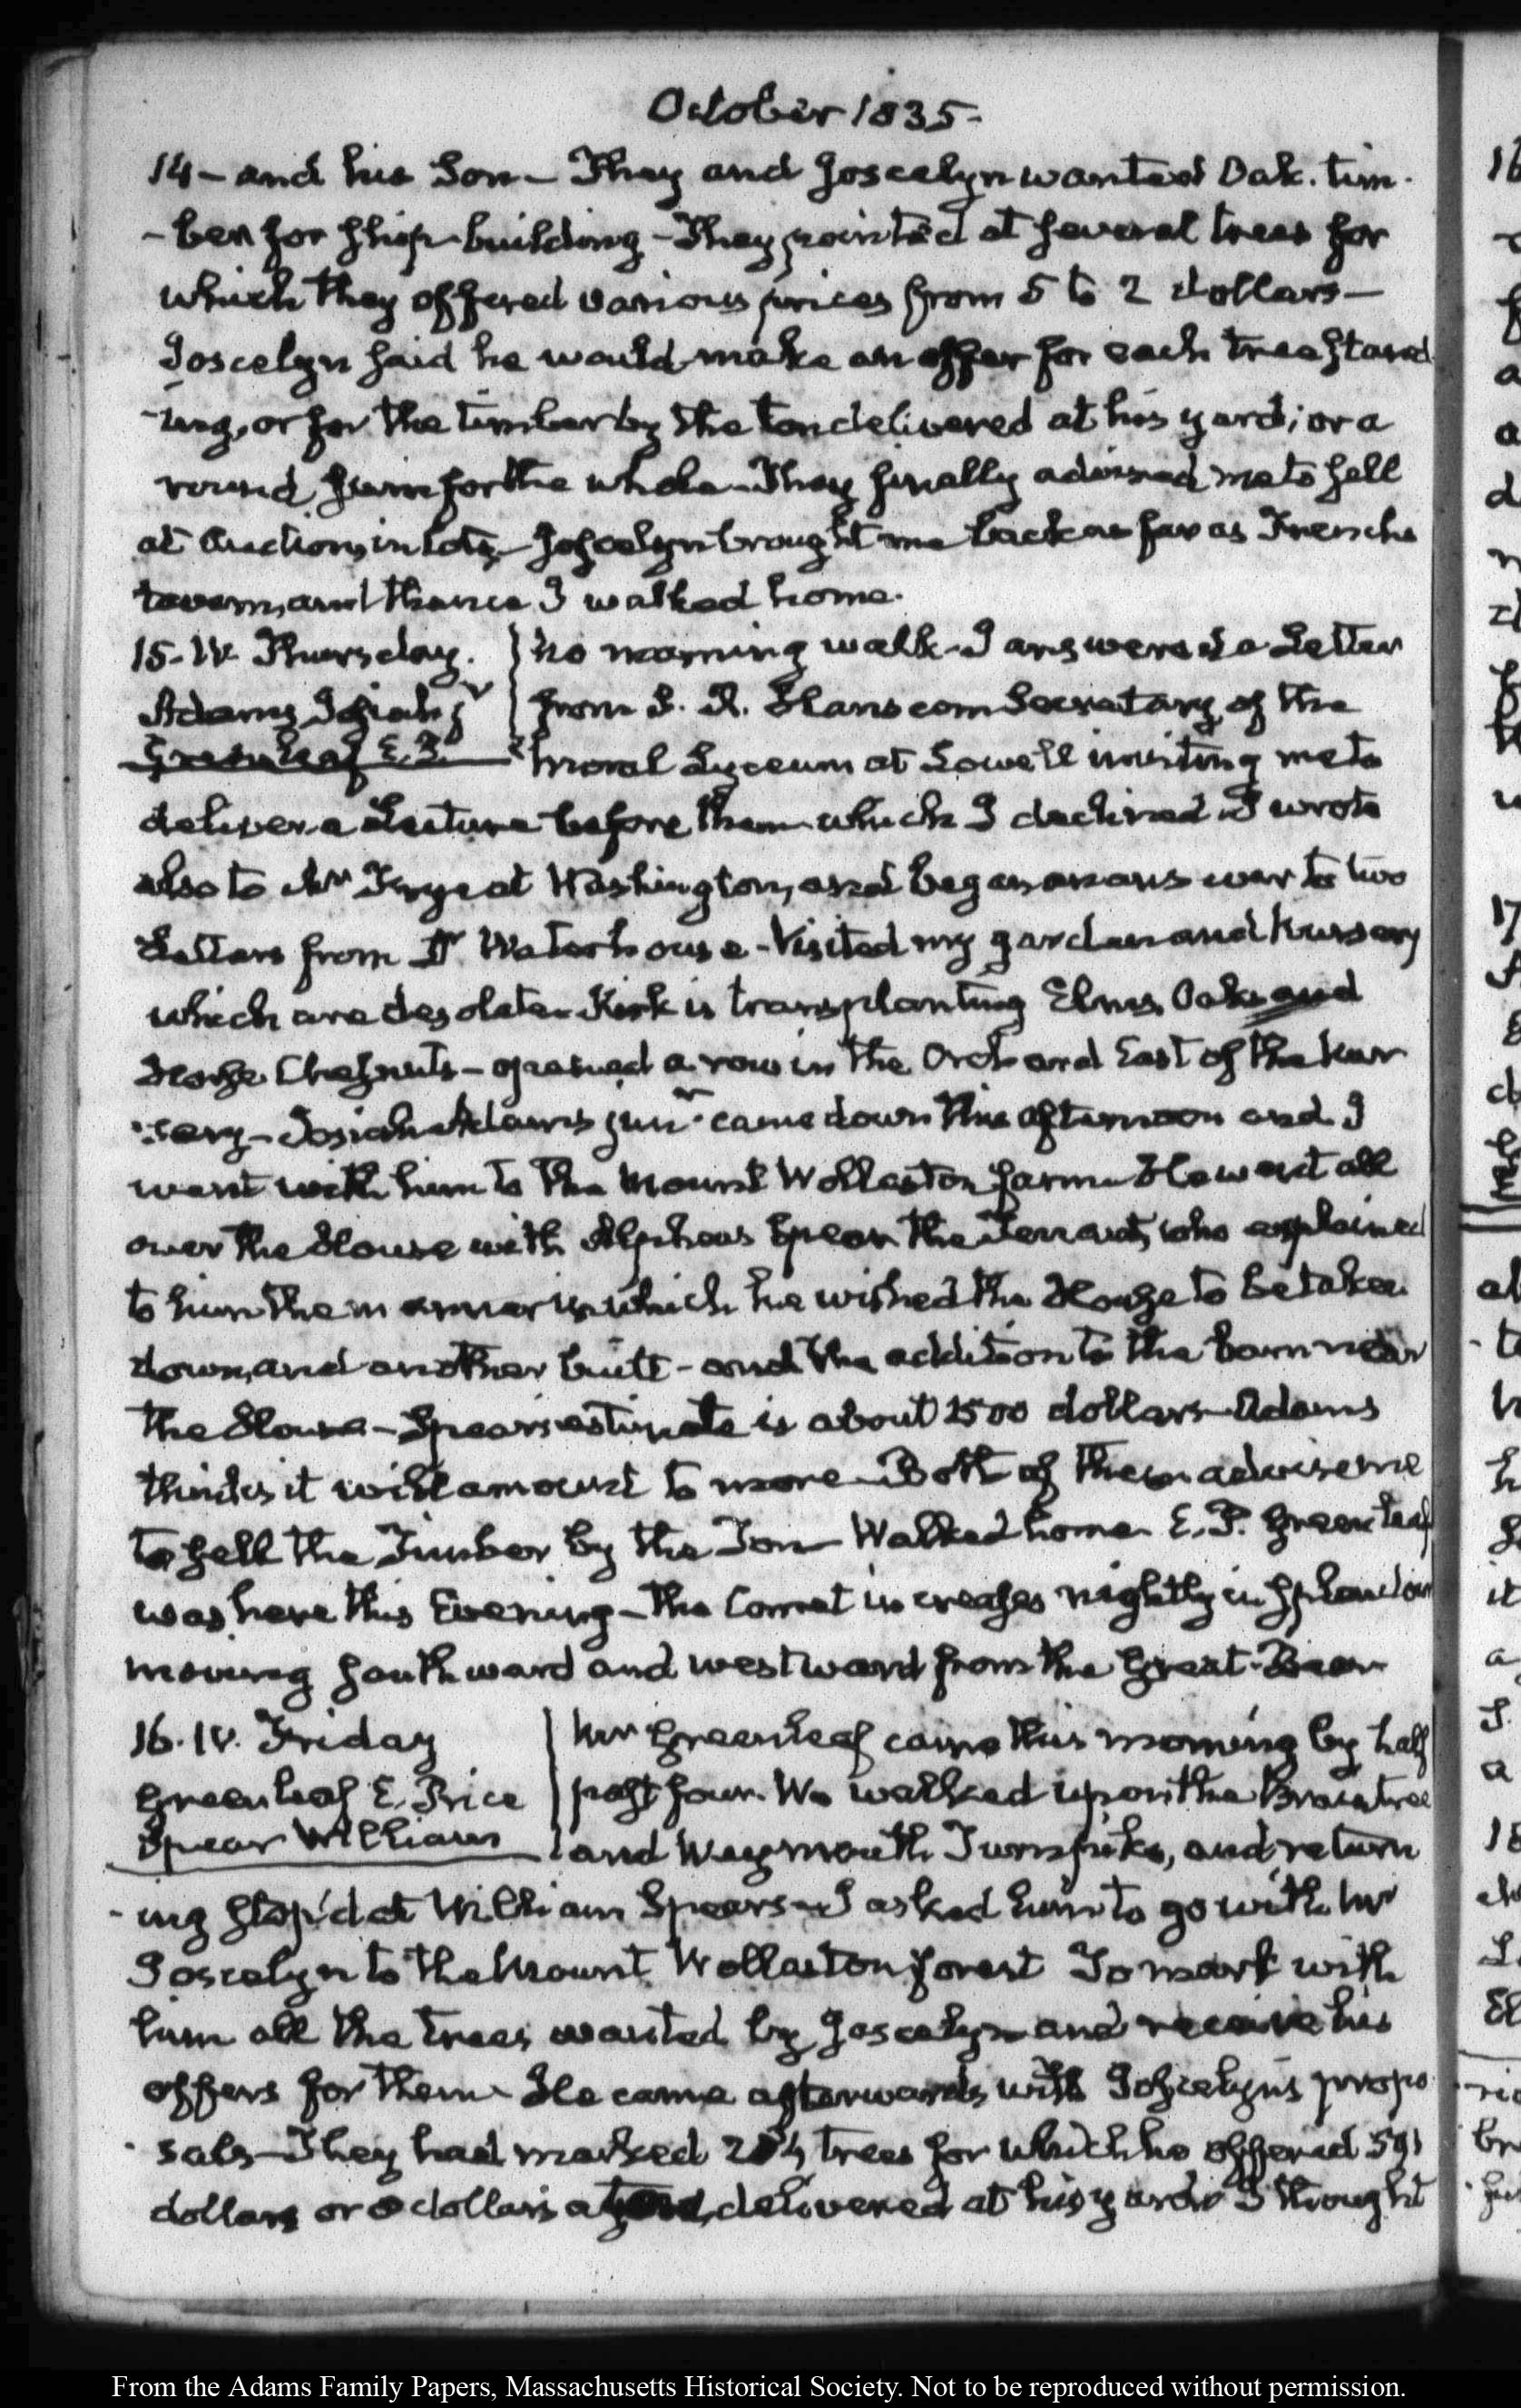 October 1835-
14- and his Son- They and Joscelyn wanted Oak. tim-
-ber for ship-building- They pointed at several trees for
which they offered various prices from 5 to 2 dollars-
Joscelyn said he would make an offer for each tree stand
-ing, or for the timber by the ton delivered at his yard; or a
round sum for the whole- They finally advised me to sell
at Auction, in lots- Joscelyn brought me back as far as French's
tavern, and thence I walked home.
15- IV. Thursday.
Adams Josiah jr
Greenleaf E. P.
No morning walk- I answered a Letter
from S. R. Hanscom Secretary of the
moral Lyceum at Lowell inviting me to
deliver a Lecture before them which I declined- I wrote
also to Mr Frye at Washington, and began an answer to two
Letters from Dr Waterhouse- Visited my garden and Nursery
which are desolate- Kirk is transplanting Elms, Oaks and
Horse Chesnuts- opened a row in the Orchard East of the Nur
-sery- Josiah Adams junr came down this afternoon and I
went with him to the Mount Wollaston farm- He went all
over the House with Alpheus Spear the Tenant, who explained
to him the manner in which he wished the House to be taken
down, and another built- and the addition to the barn near
the House- Spear's estimate is about 1500 dollars- Adams
thinks it will amount to more- Both of them advise me
to sell the Timber by the Ton- Walked home- E. P. Greenleaf
was here this Evening- The Comet increases nightly in splendour
moving southward and westward from the Great-Bear
16. IV. Friday
Greenleaf E. Price
Spear William
Mr Greenleaf came this morning by half
past four. We walked upon the Braintree
and Weymouth Turnpike, and return
-ing stop'd at William Spear's- I asked him to go with Mr
Joscelyn to the Mount Wollaston forest To mark with
him all the trees wanted by Joscelyn and receive his
offers for them- He came afterwards with Joscelyn's propo
-sals- They had marked trees for which he offered 591
dollars or 8 dollars a ton, delivered at his yard- I thought
From the Adams Family Papers, Massachusetts Historical Society. Not to be reproduced without permission.